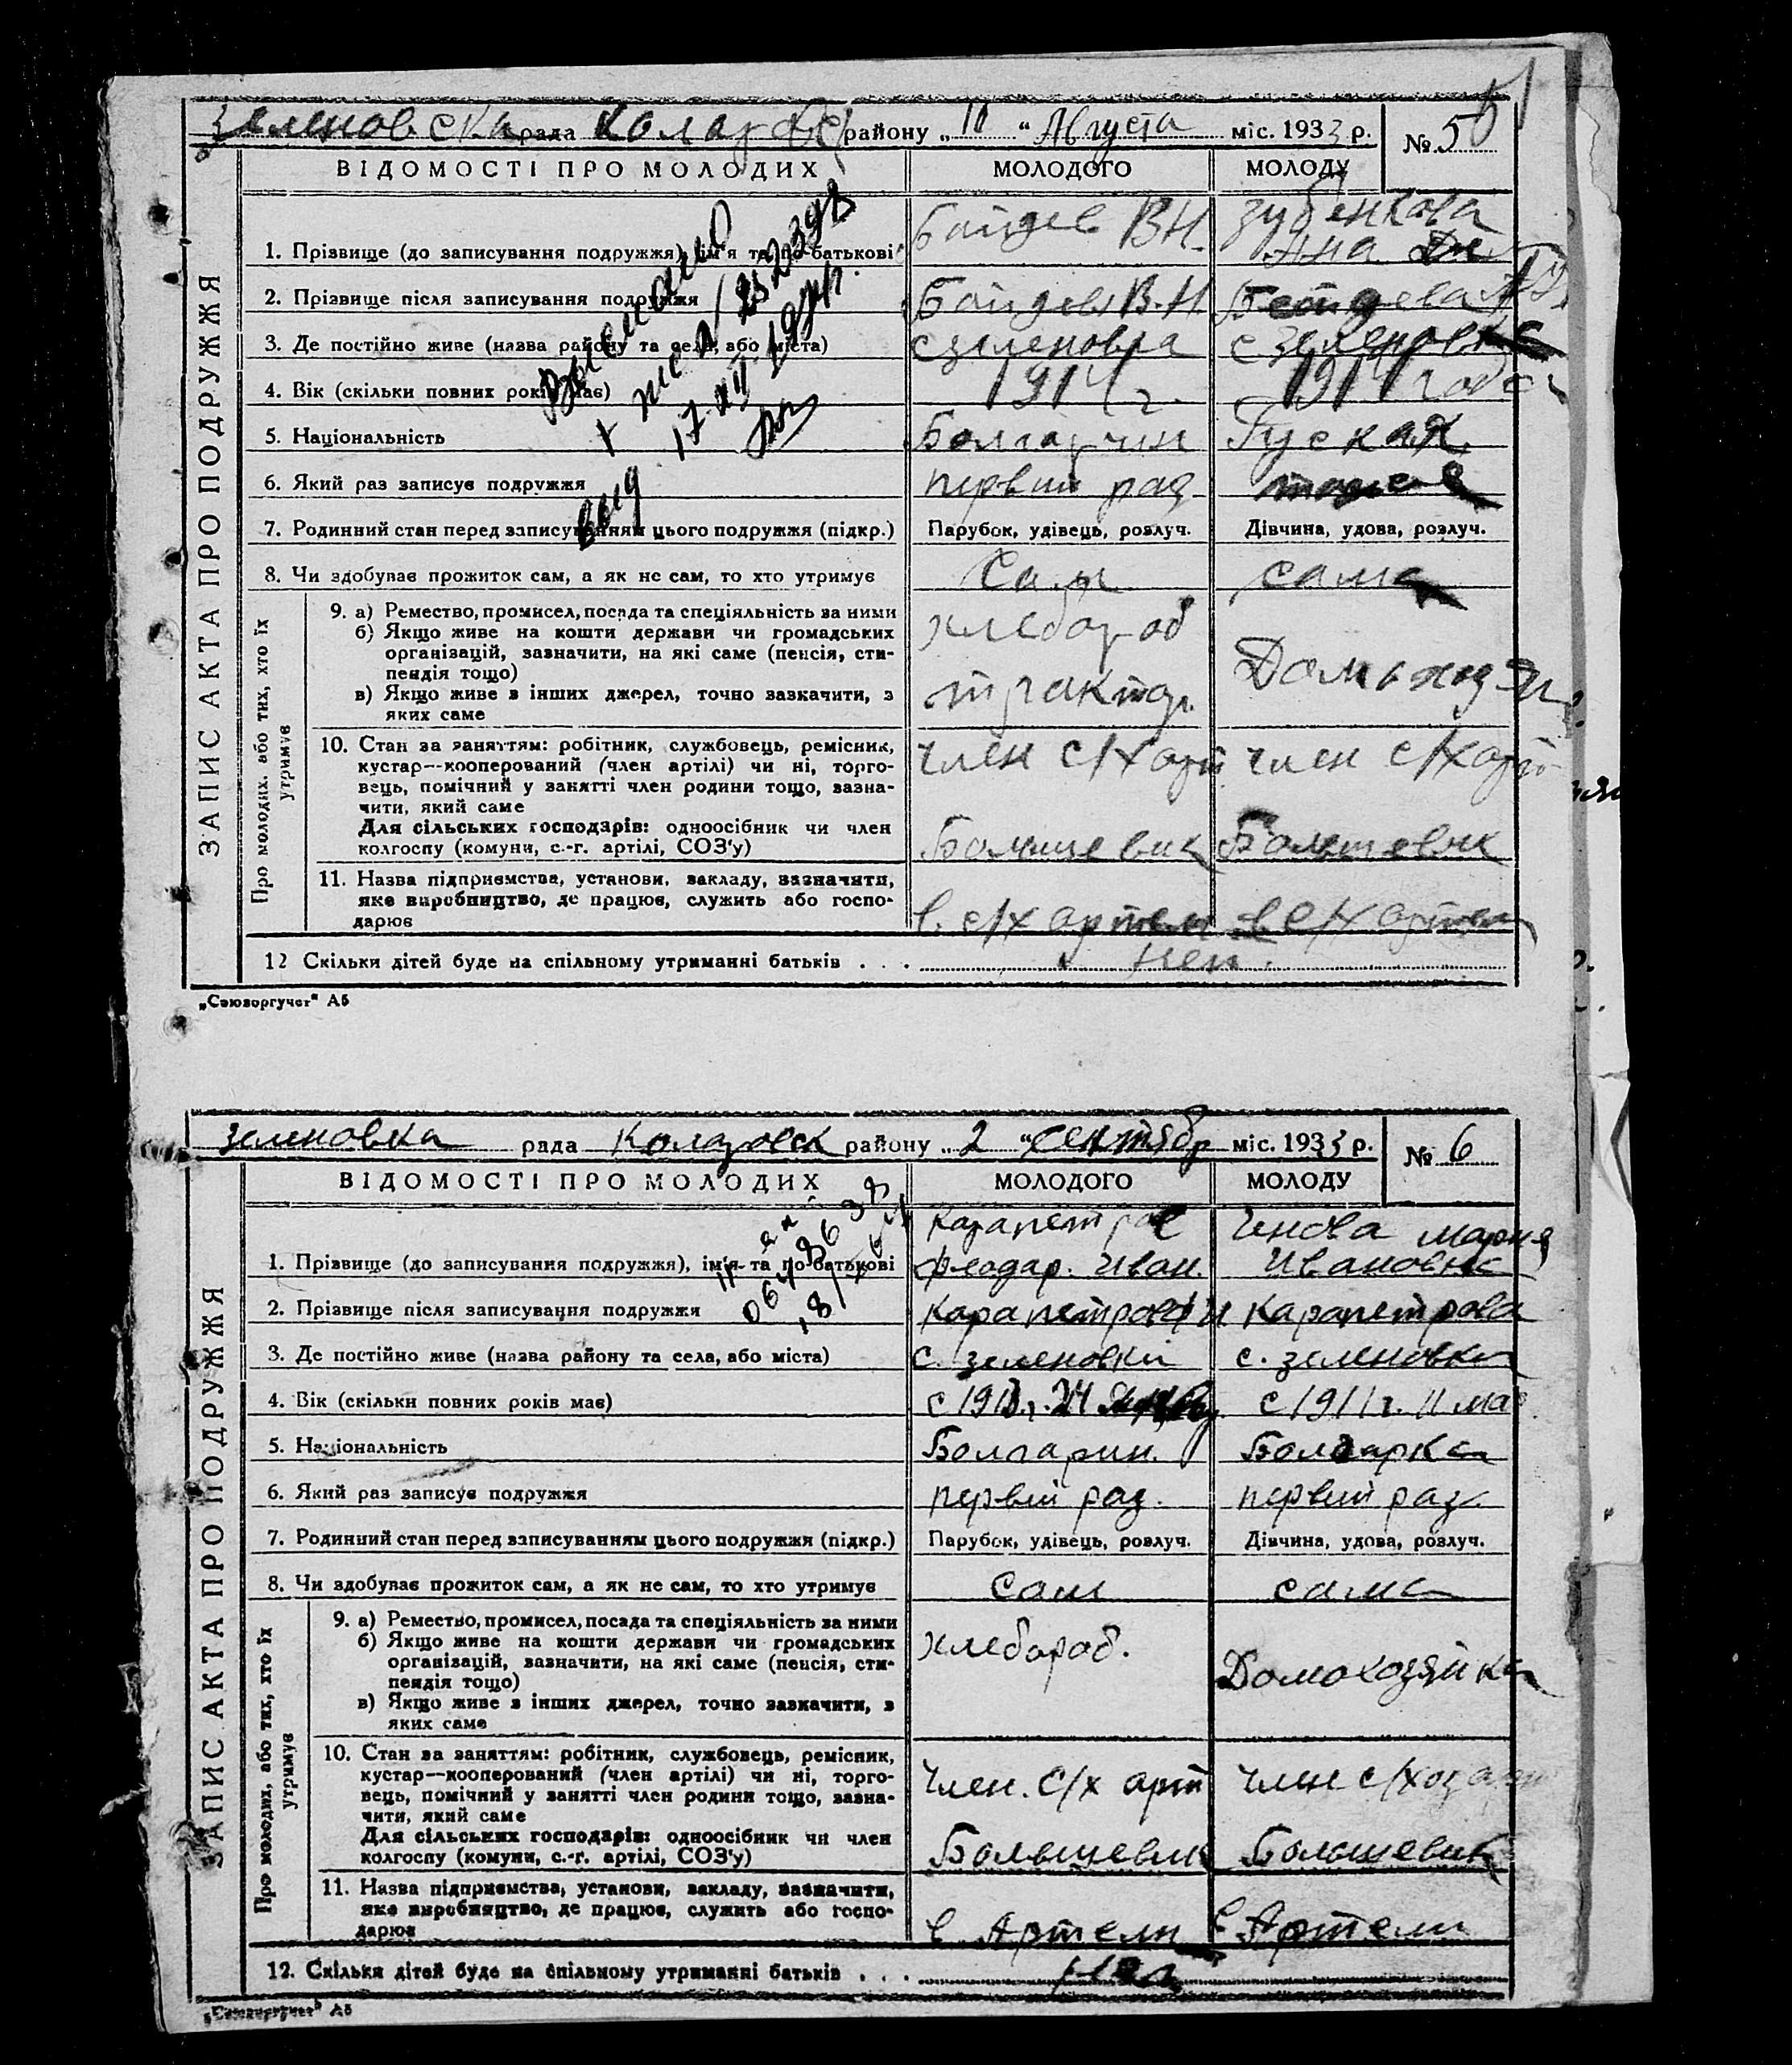 Зеленовска рада района „10“ Августа міс. 1933 р. № 5
ВІДОМОСТІ ПРО МОЛОДИХ МОЛОДОГО МОЛОДУ
ЗАПИС АКТА ПРО ПОДРУЖЖЯ
1. Прізвище (до записування подружжя), ім'я та по-батькові В Н. Зубенкова Ана
2. Прізвище після записування подружжя В. Н.
3. Де постійно живе (назва району та села, або міста) с зеленовка с зеленовка
4. Вік (скільки повних років має) 1914 г. 1911 года
5. Національність Болгарин Руская
6. Який раз записує подружжя первий раз тоже
7. Родинний стан перед записуванням цього подружжя (підкр.) Парубок, удівець, розлуч. Дівчина, удова, розлуч.
8. Чи здобуває прожиток сам, а як не сам, то хто утримує Сам сама
Про молодих, або тих, хто їх утримує
9. а) Ремество, промисел, посада та спеціяльність за ними
б) Якщо живе на кошти держави чи громадських
організацій, зазначити, на які саме (пенсія, сти-
пендія тощо)
в) Якщо живе з інших джерел, точно зазначити, з
яких саме
хлебороб
трактор.
10. Стан за заняттям: робітник, службовець, ремісник,
кустар—кооперований (член артілі) чи ні, торго-
вець, помічний у занятті член родини тощо, зазна-
чити, який саме
Для сільських господарів: одноосібник чи член
колгоспу (комуни, с.-г. артілі, СОЗ'у)
член с/х арт член с/х арт
Большевик Большевик
11. Назва підприємства, установи, закладу, зазначити,
яке виробництво, де працює, служить або госпо-
дарює
в. с/х артели в с/х артели
12 Скільки дітей буде на спільному утриманні батьків . . . нет.
Выслано
17 XII 1974г.
„Союзоргучет“ А5
зеленовка рада району „2“ сентябр міс. 1933 р. № 6
ВІДОМОСТІ ПРО МОЛОДИХ МОЛОДОГО МОЛОДУ
ЗАПИС АКТА ПРО ПОДРУЖЖЯ
1. Прізвище (до записування подружжя), ім'я та по-батькові Иван. Чнова Мария Ивановна
2. Прізвище після записування подружжя Карапетрова
3. Де постійно живе (назва району та села, або міста) с. зеленовка с. зеленовка
4. Вік (скільки повних років має) с 1911 г. 11 мая
5. Національність Болгарин. Болгарка
6. Який раз записує подружжя первий раз. первий раз.
7. Родинний стан перед записуванням цього подружжя (підкр.) Парубок, удівець, розлуч. Дівчина, удова, розлуч.
8. Чи здобуває прожиток сам, а як не сам, то хто утримує Сам сама
Про молодих, або тих, хто їх утримує
9. а) Ремество, промисел, посада та спеціяльність за ними
б) Якщо живе на кошти держави чи громадських
організацій, зазначити, на які саме (пенсія, сти-
пендія тощо)
в) Якщо живе з інших джерел, точно зазначити, з
яких саме
хлебороб. Домохозяйка
10. Стан за заняттям: робітник, службовець, ремісник,
кустар—кооперований (член артілі) чи ні, торго-
вець, помічний у занятті член родини тощо, зазна-
чити, який саме
Для сільських господарів: одноосібник чи член
колгоспу (комуни, с.-г. артілі, СОЗ'у)
член. С/х арт член
Большевик Большевик
11. Назва підприємства, установи, закладу, зазначити,
яке виробництво, де працює, служить або госпо-
дарює
в Артели в Артели
12. Скільки дітей буде на спільному утриманні батьків . . . нет
„Союзоргучет“ А5